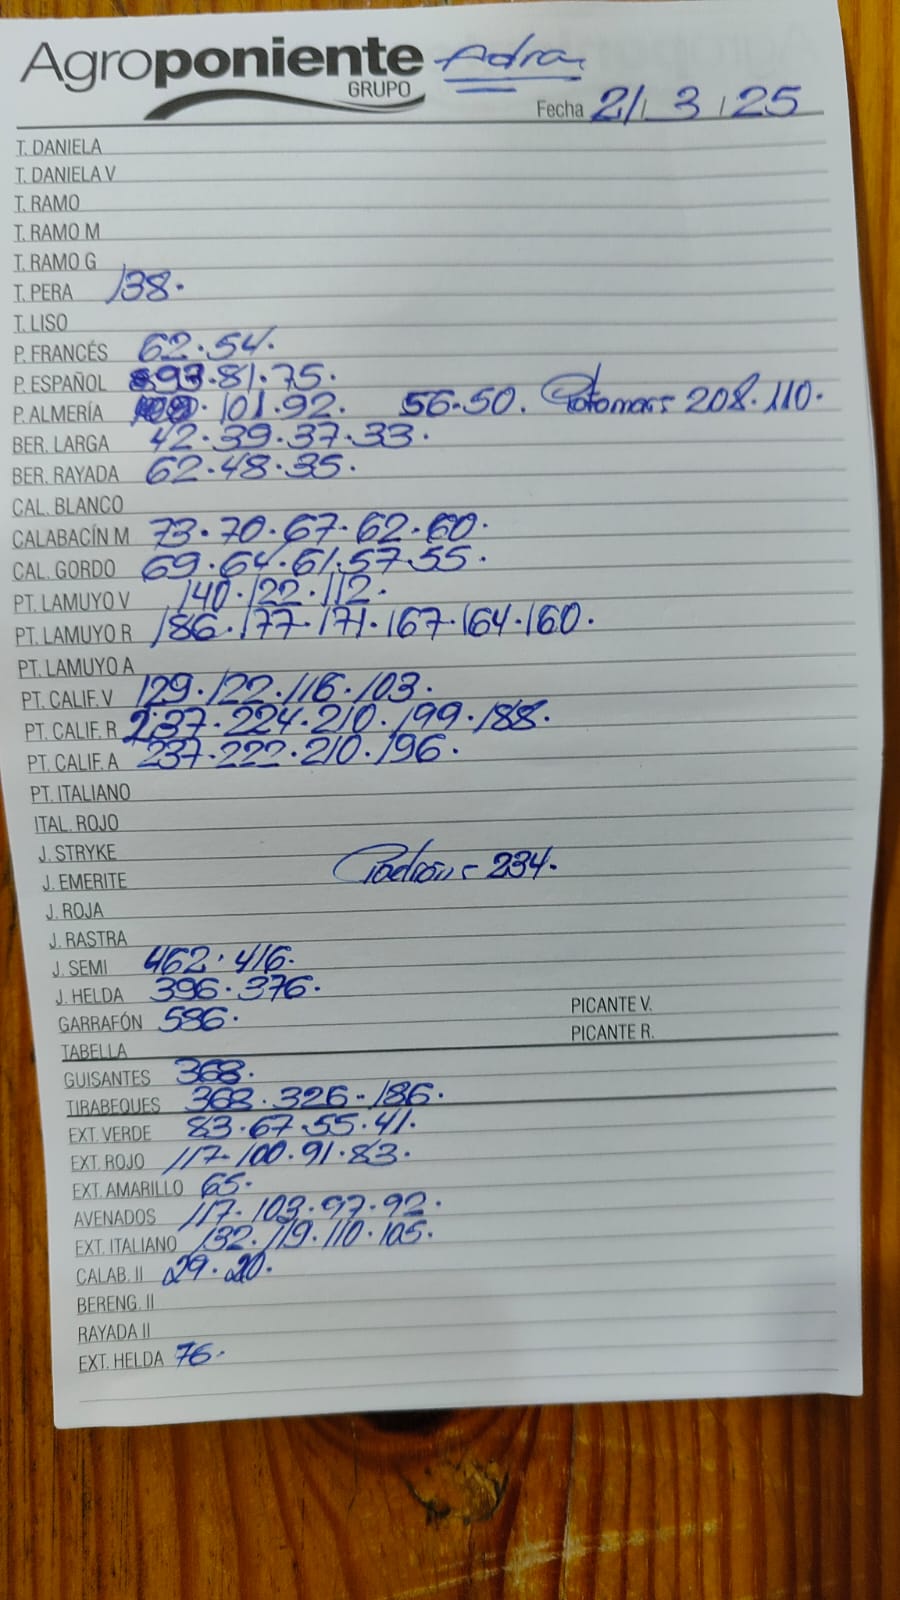 Agroponiente Adra
GRUPO
Fecha 21 / 3 / 25
T. DANIELA
T. DANIELA V
T. RAMO
T. RAMO M
T. RAMO G
T. PERA 138.
T. LISO
P. FRANCÉS 62.54.
P. ESPAÑOL 93.81.75.
P. ALMERÍA 101.92. 56-50. 208.110.
BER. LARGA 42.39.37.33.
BER. RAYADA 62.48.35.
CAL. BLANCO
CALABACÍN M 73.70.67.62.60.
CAL. GORDO 69.64.61.57.55.
PT. LAMUYO V 140.122.112.
PT. LAMUYO R 186.177.171.167.164.160.
PT. LAMUYO A
PT. CALIF. V 129.122.116.103.
PT. CALIF. R 237.224.210.199.188.
PT. CALIF. A 237.222.210.196.
PT. ITALIANO
ITAL. ROJO
J. STRYKE
J. EMERITE Padrón = 234.
J. ROJA
J. RASTRA
J. SEMI 462.416.
J. HELDA 396.376.
GARRAFÓN 586. PICANTE V.
TABELLA PICANTE R.
GUISANTES 368.
TIRABEQUES 368.326-186.
EXT. VERDE 83.67.55.41.
EXT. ROJO 117.100.91.83.
EXT. AMARILLO 65.
AVENADOS 117.103.97.92.
EXT. ITALIANO 132.119.110.105.
CALAB. II 29.20.
BERENG. II
RAYADA II
EXT. HELDA 76.